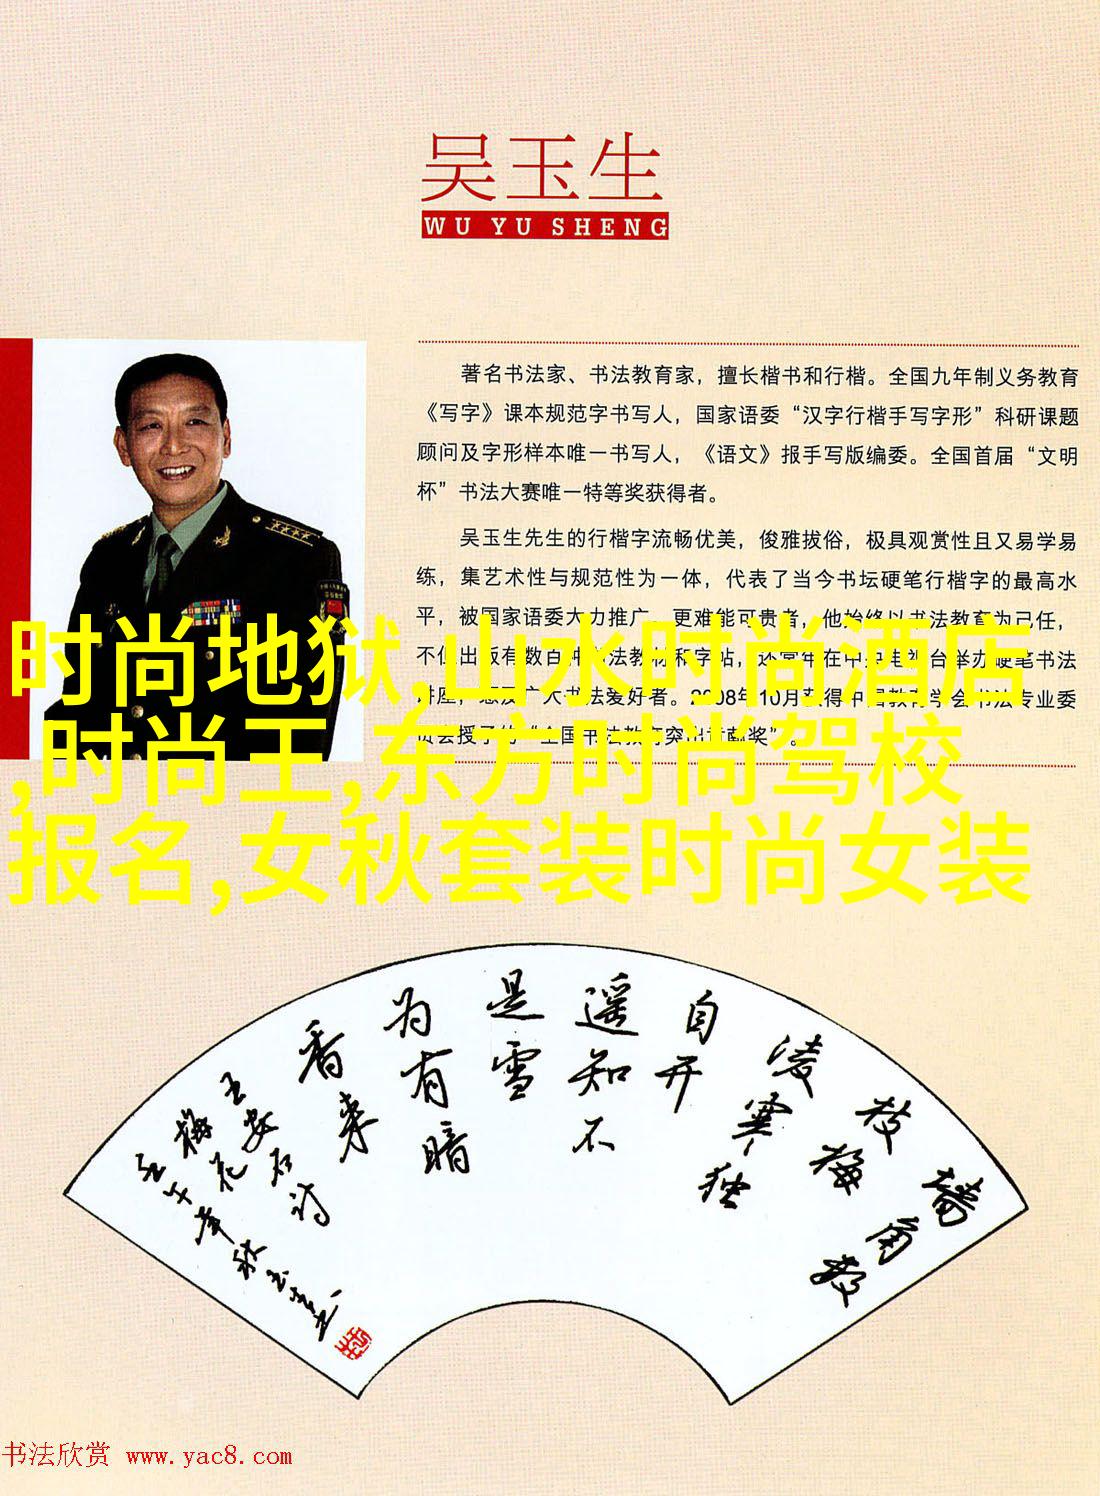 吴玉生
WU YU SHENG
著名书法家、书法教育家，擅长楷书和行楷。全国九年制义务教育
《写字》课本规范字书写人，国家语委“汉字行楷手写字形”科研课题
顾问及字形样本唯一书写人，《语文》报手写版编委。全国首届“文明
杯”书法大赛唯一特等奖获得者。
吴玉生先生的行楷字流畅优美，俊雅拔俗，极具观赏性且又易学易
练，集艺术性与规范性为一体，代表了当今书坛硬笔行楷字的最高水
平，被国家语委大力推广。更难能可贵者，他始终以书法教育为己任，
不但出版有数百种书法教材和字帖，还常年在中央电视台举办硬笔书法
讲座，惠及广大书法爱好者。2008年10月获得中国教育学会书法专业委
员会授予的“全国书法教育突出贡献奖”。
时尚地狱,山水时尚酒店
,时尚王,东方时尚驾校
报名,女秋套装时尚女装
墙角数
枝梅
凌寒独
自开
遥知不
是雪
为有暗
香来
王安石诗
梅花
壬午年秋玉生
书法欣赏 www.yac8.com